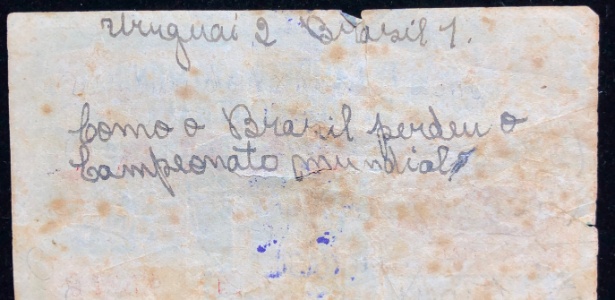 Uruguai 2 Brasil 1.
Como o Brazil perdeu o
Campeonato mundial